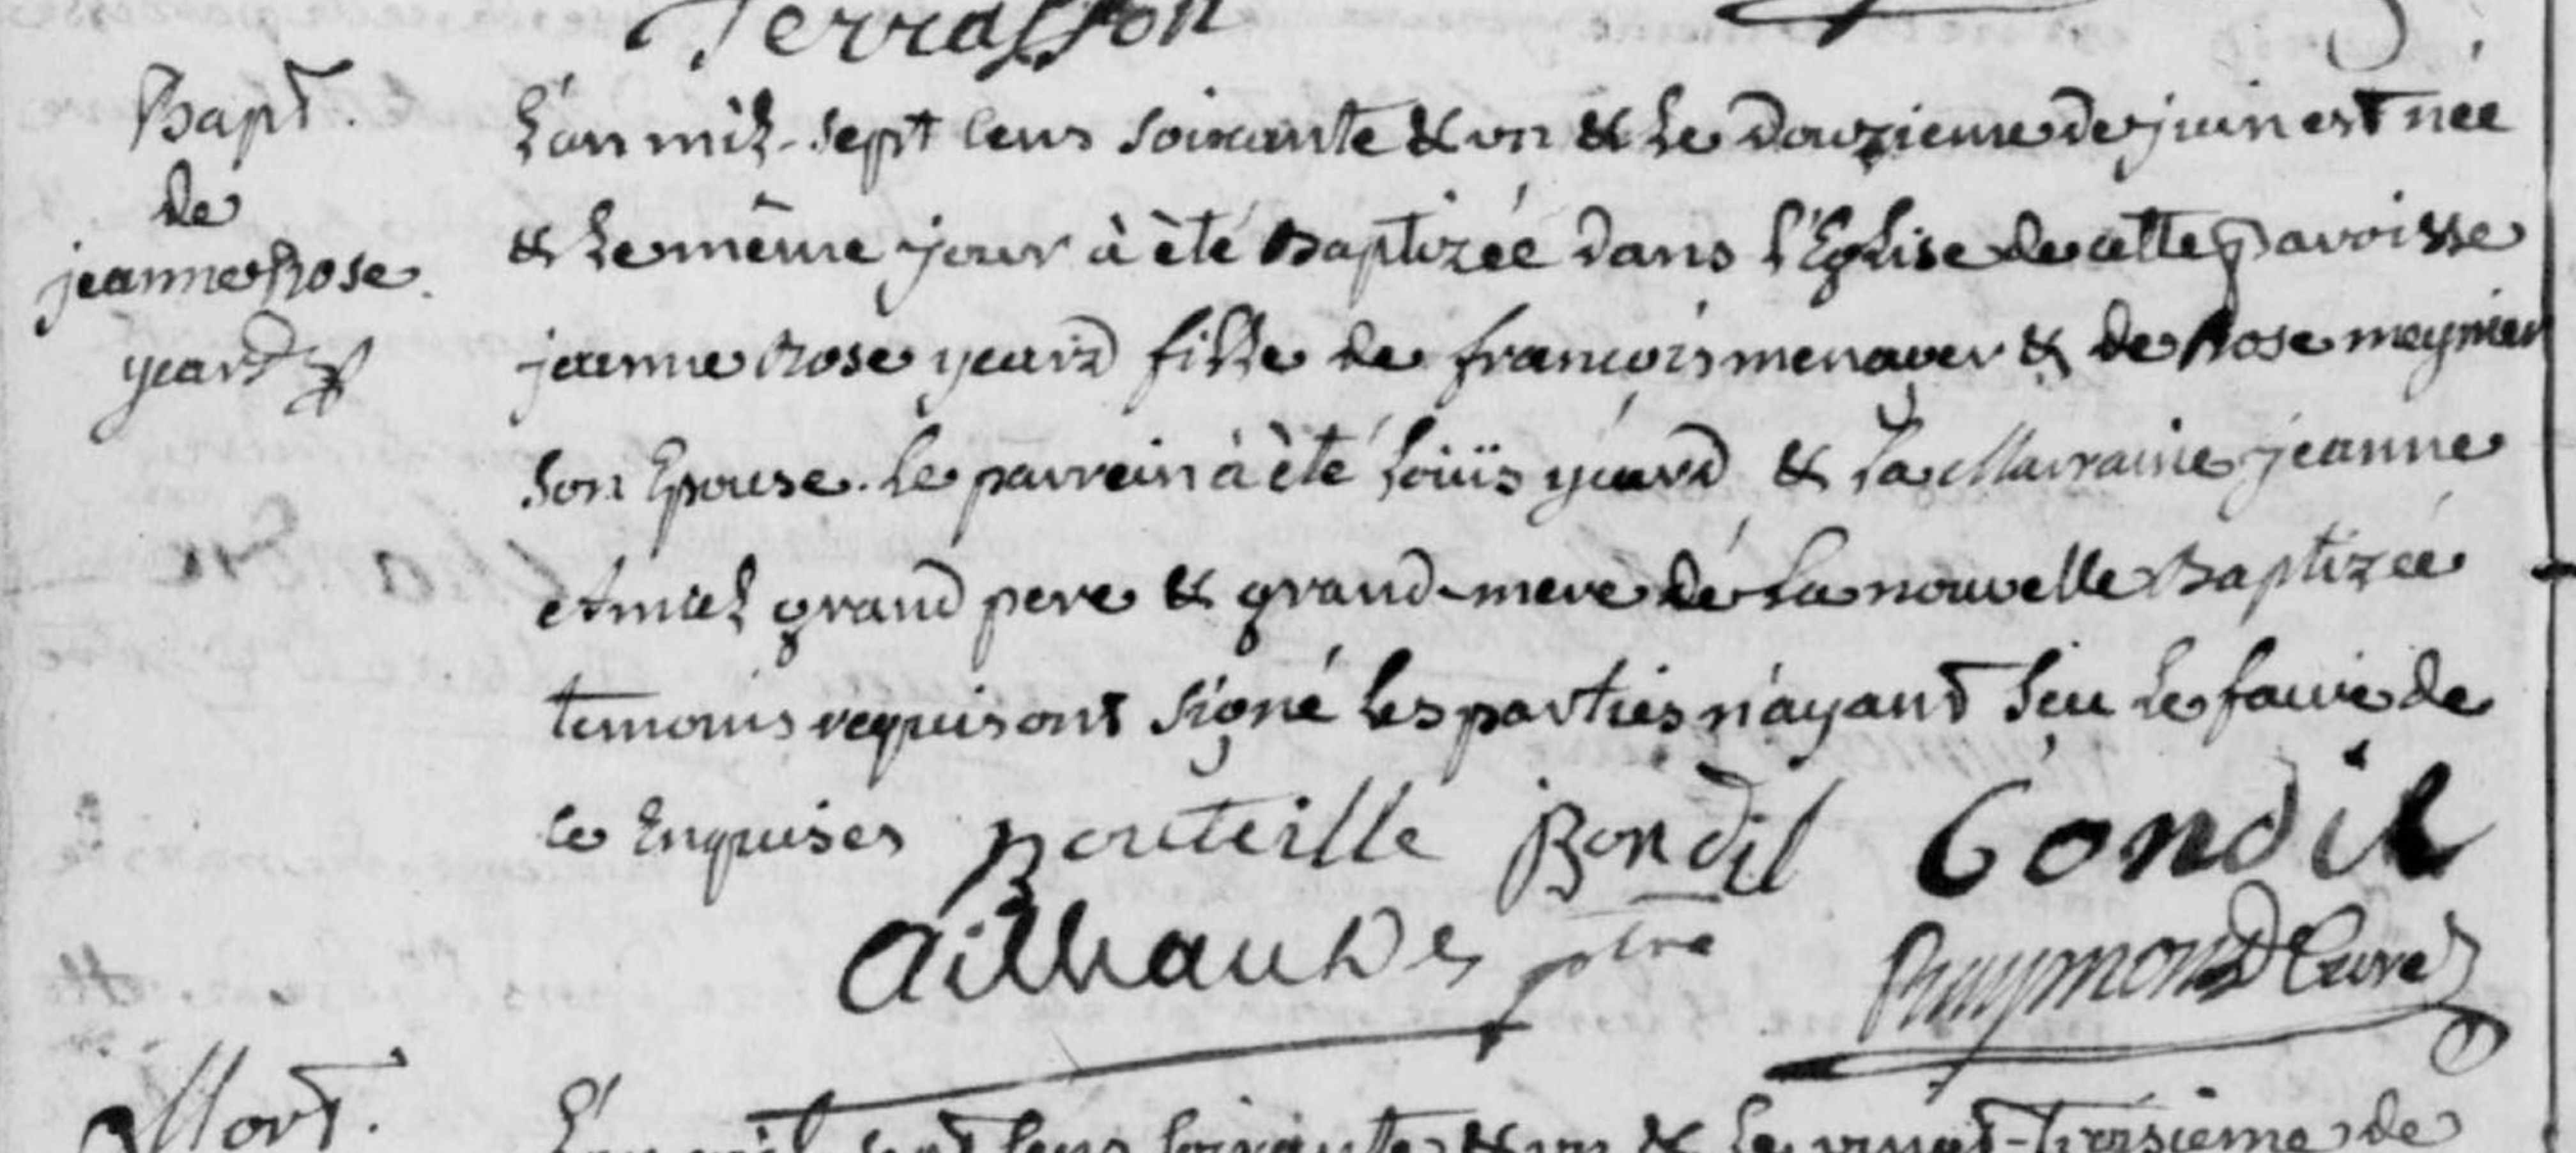 Terrasson
Bapt.
de
jeanne Rose.
yeard
L'an mil-sept cens soixante & un & le douzieme de juin est née
& le même jour à èté Baptizée dans l'Eglise de cette paroisse
jeanne Rose yeard fille de francois menager & de Rose meynier
son Epouse. le parrein à èté Loüis yeard & la Marraine jeanne
Amiel grand pere & grand-mere de la nouvelle Baptizée
temoins requis ont signé les parties n'ayant seu le faire de
ce Enquises pouteille Bondil Gondil
Ailhaud ptre Raymond Curé
Mort.
L'an mil sept cens soixante & un & le vingt-troisieme de